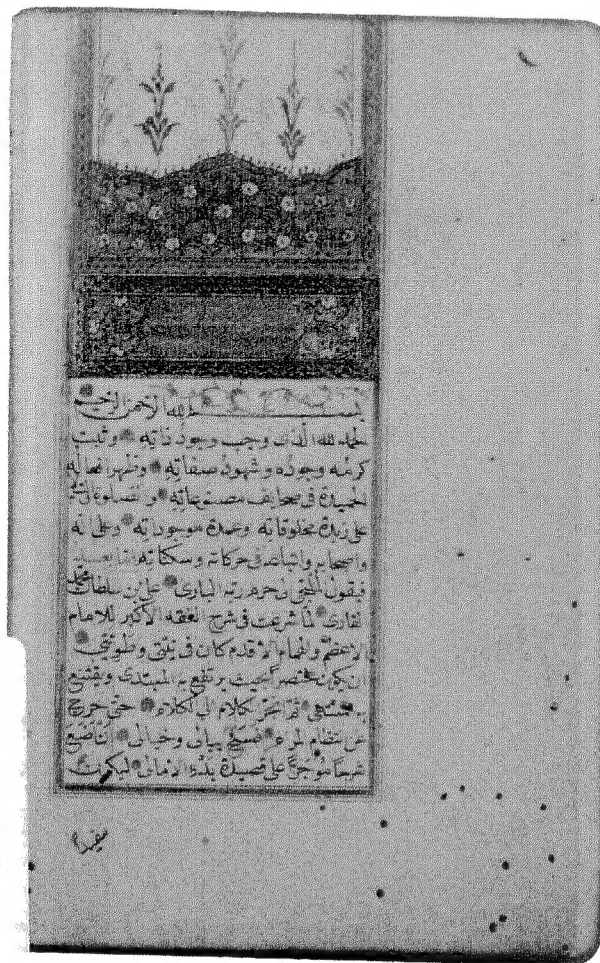 بسم الله الرحمن الرحيم
الحمد لله الذى وجب وجود ذاته وثبت
كرمه وجوده وشهود صفاته وظهر افعاله
الحميدة فى صحايف مصنوعاته والصلوة
على زبدة مخلوقاته وعمدة موجوداته وعلى اله
واصحابه واتباعه فى حركاته وسكناته اما بعد
فيقول الملتجى الى حرم ربه البارى على بن سلطان محمد
القارى لما شرعت فى شرح الفقه الاكبر للامام
الاعظم والهمام الاقدم كان فى نيتى وطويتى
ان يكون مختصرا بحيث يرتفع به المبتدى ويقتنع
به المنتهى ثم انجر كلام الى الكلام حتى خرج
عن نظام المرام فسنح ببالى وخيالى ان اضع
شرحا موجزا على قصيدة بدء الامالى ليكون